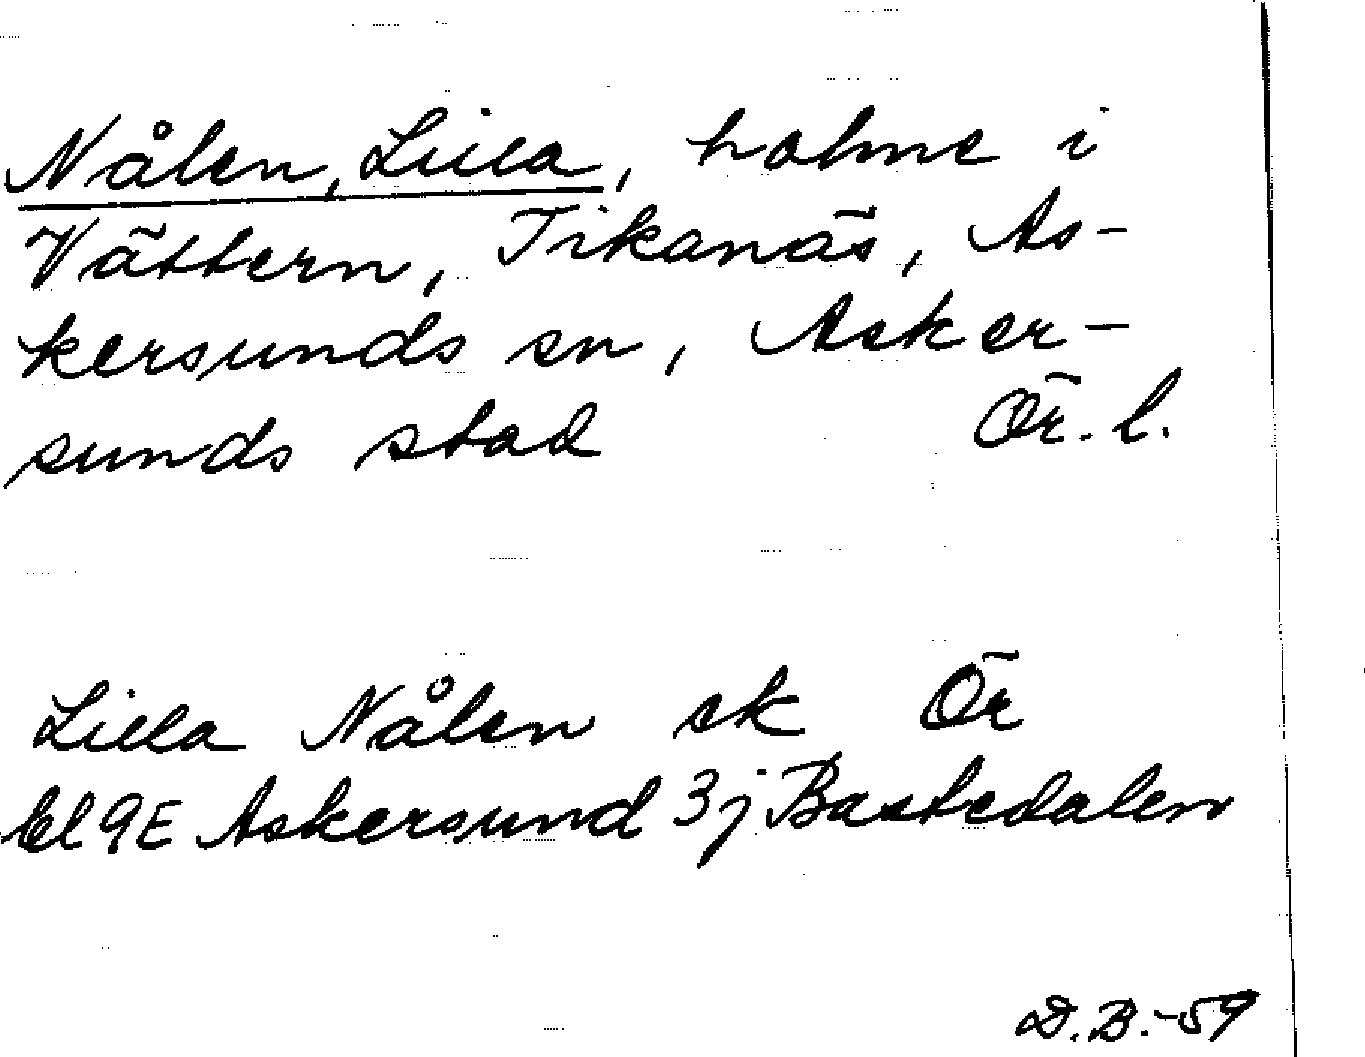 Nålen, Lilla, holme i
Vättern, Tikanäs, As-
kersunds sn, Asker-
sunds stad Ör. l.
Lilla Nålen ek Ör
bl 9E Askersund 3j Bastedalen
D.B.-59